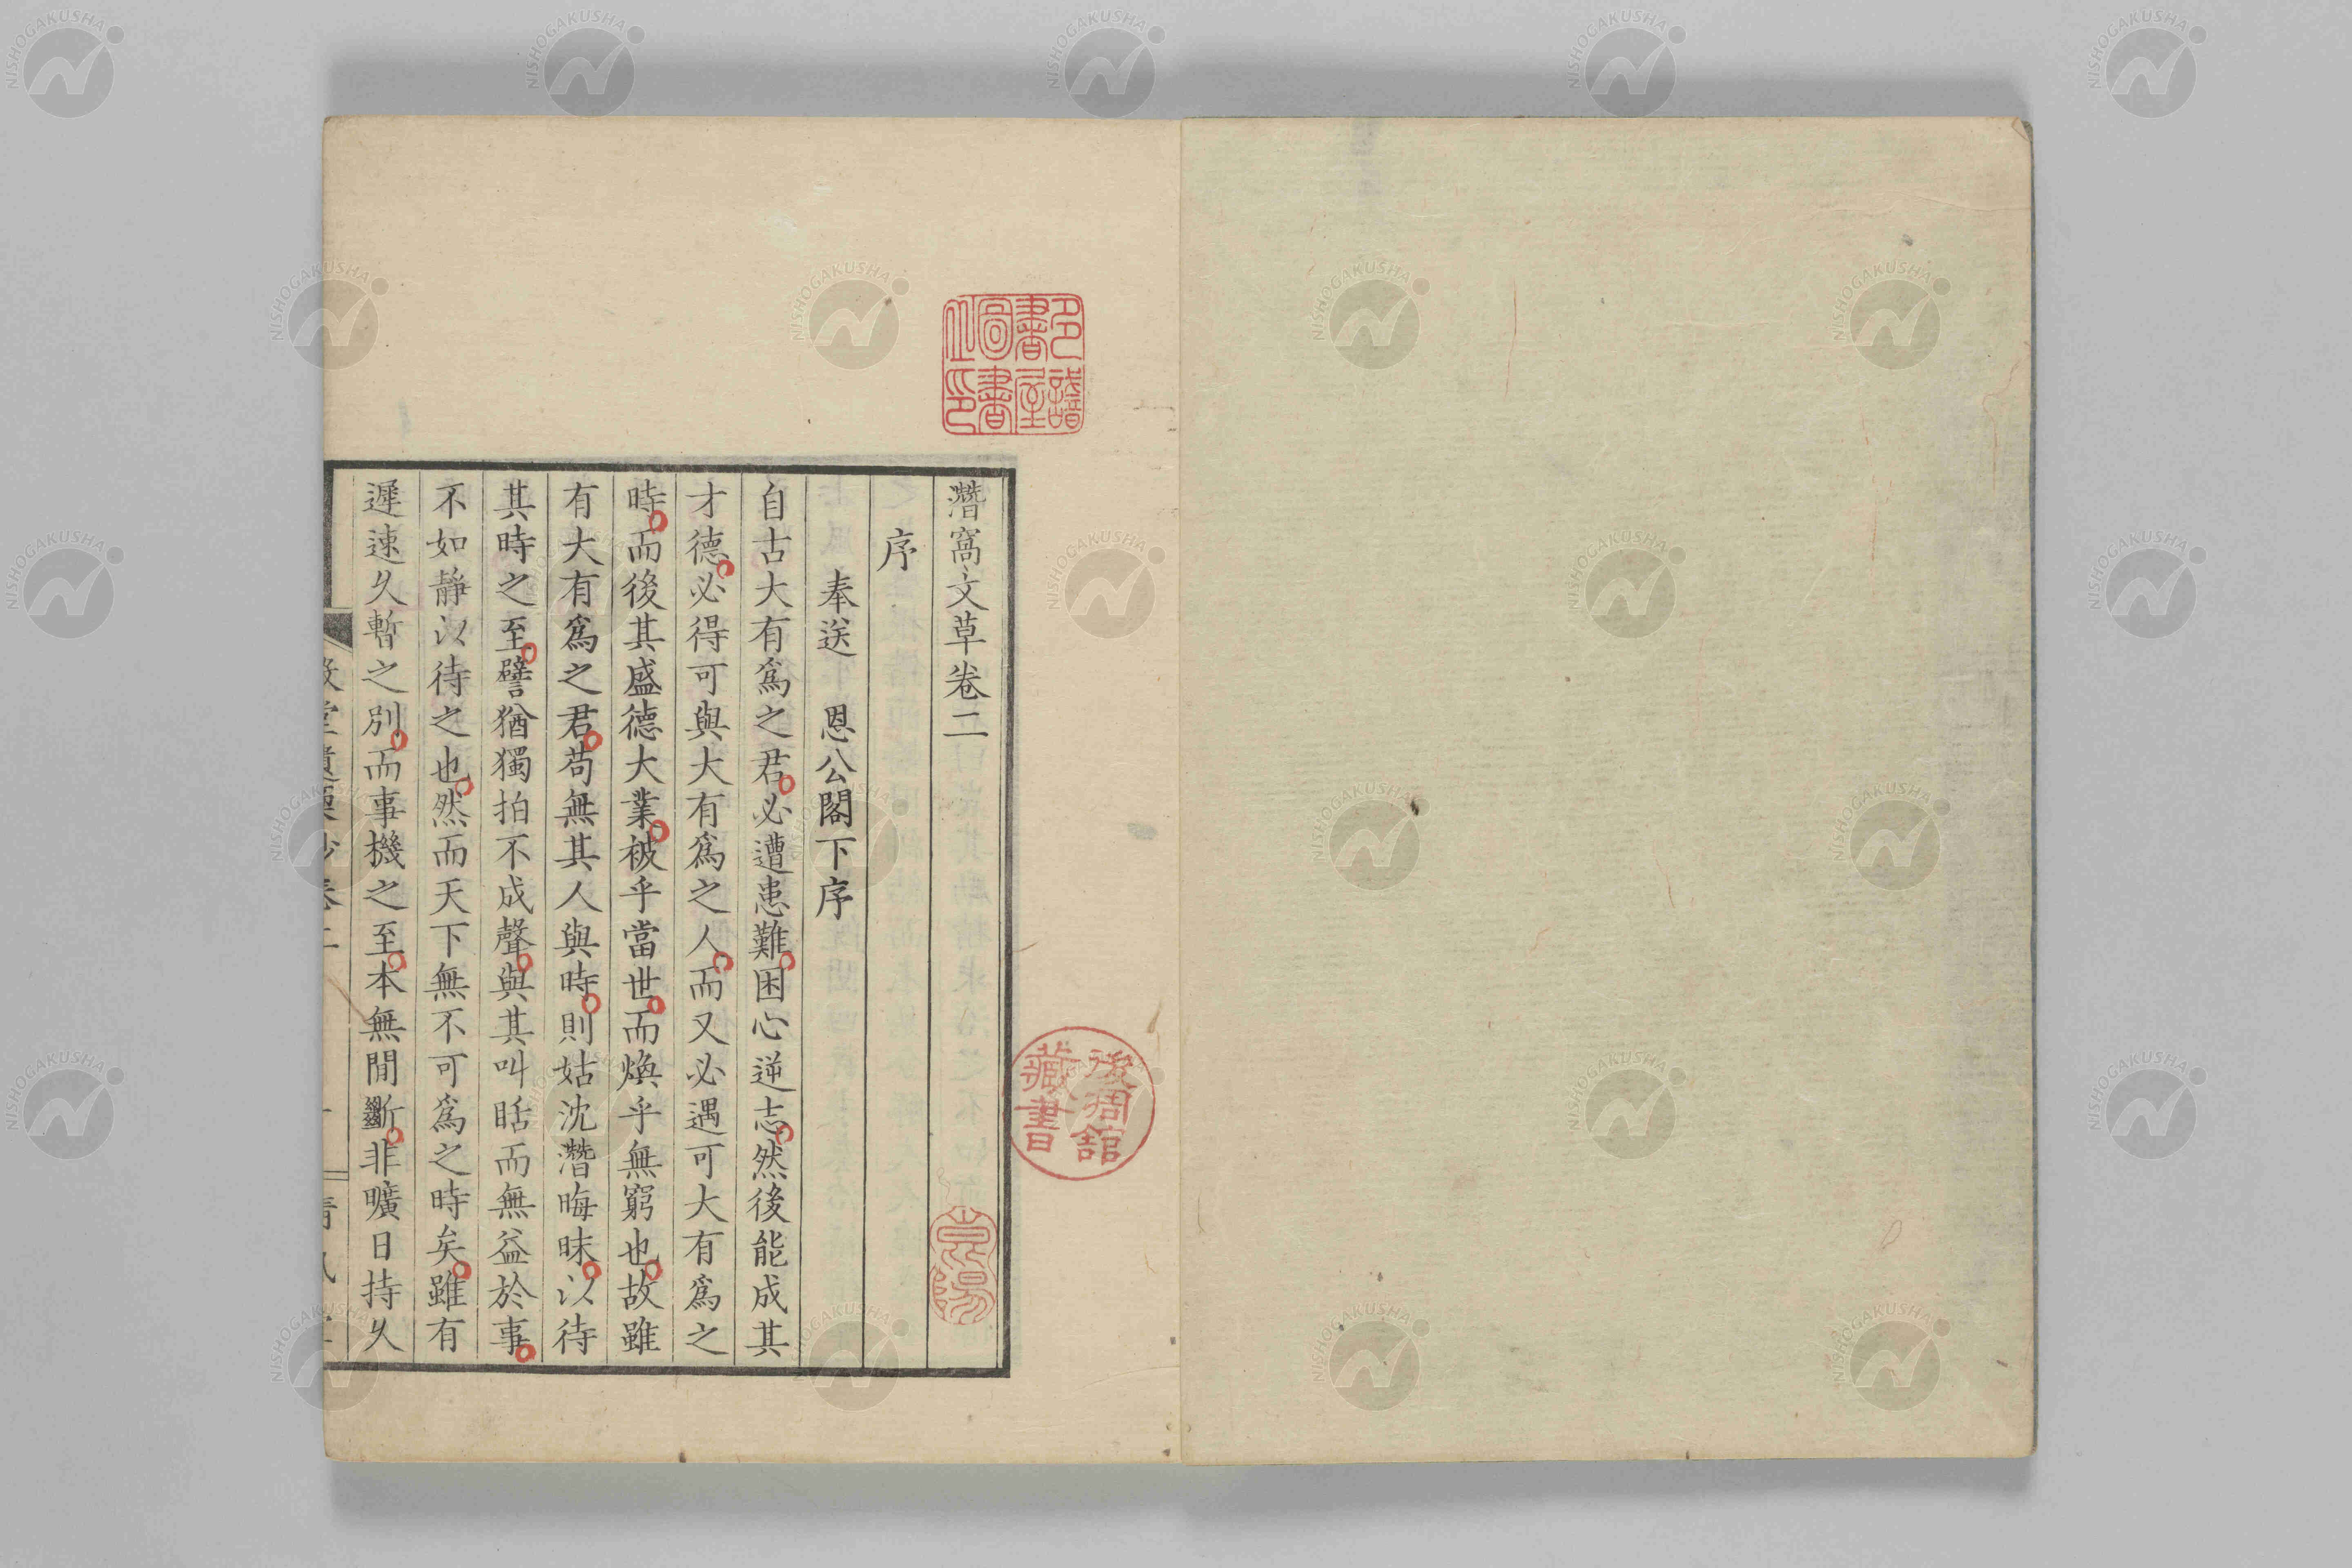 潛窩文草卷二
序
奉送 恩公閣下序
自古大有爲之君必遭患難困心逆志然後能成其
才德必得可與大有爲之人而又必遇可大有爲之
時而後其盛德大業被乎當世而煥乎無窮也故雖
有大有爲之君苟無其人與時則姑沈潛晦昧以待
其時之至譬猶獨拍不成聲與其叫聒而無益於事
不如靜以待之也然而天下無不可爲之時矣雖有
遲速久暫之別而事機之至本無間斷非曠日持久
書屋
圖書
之印
後凋舘
藏書
NISHOGAKUSHA